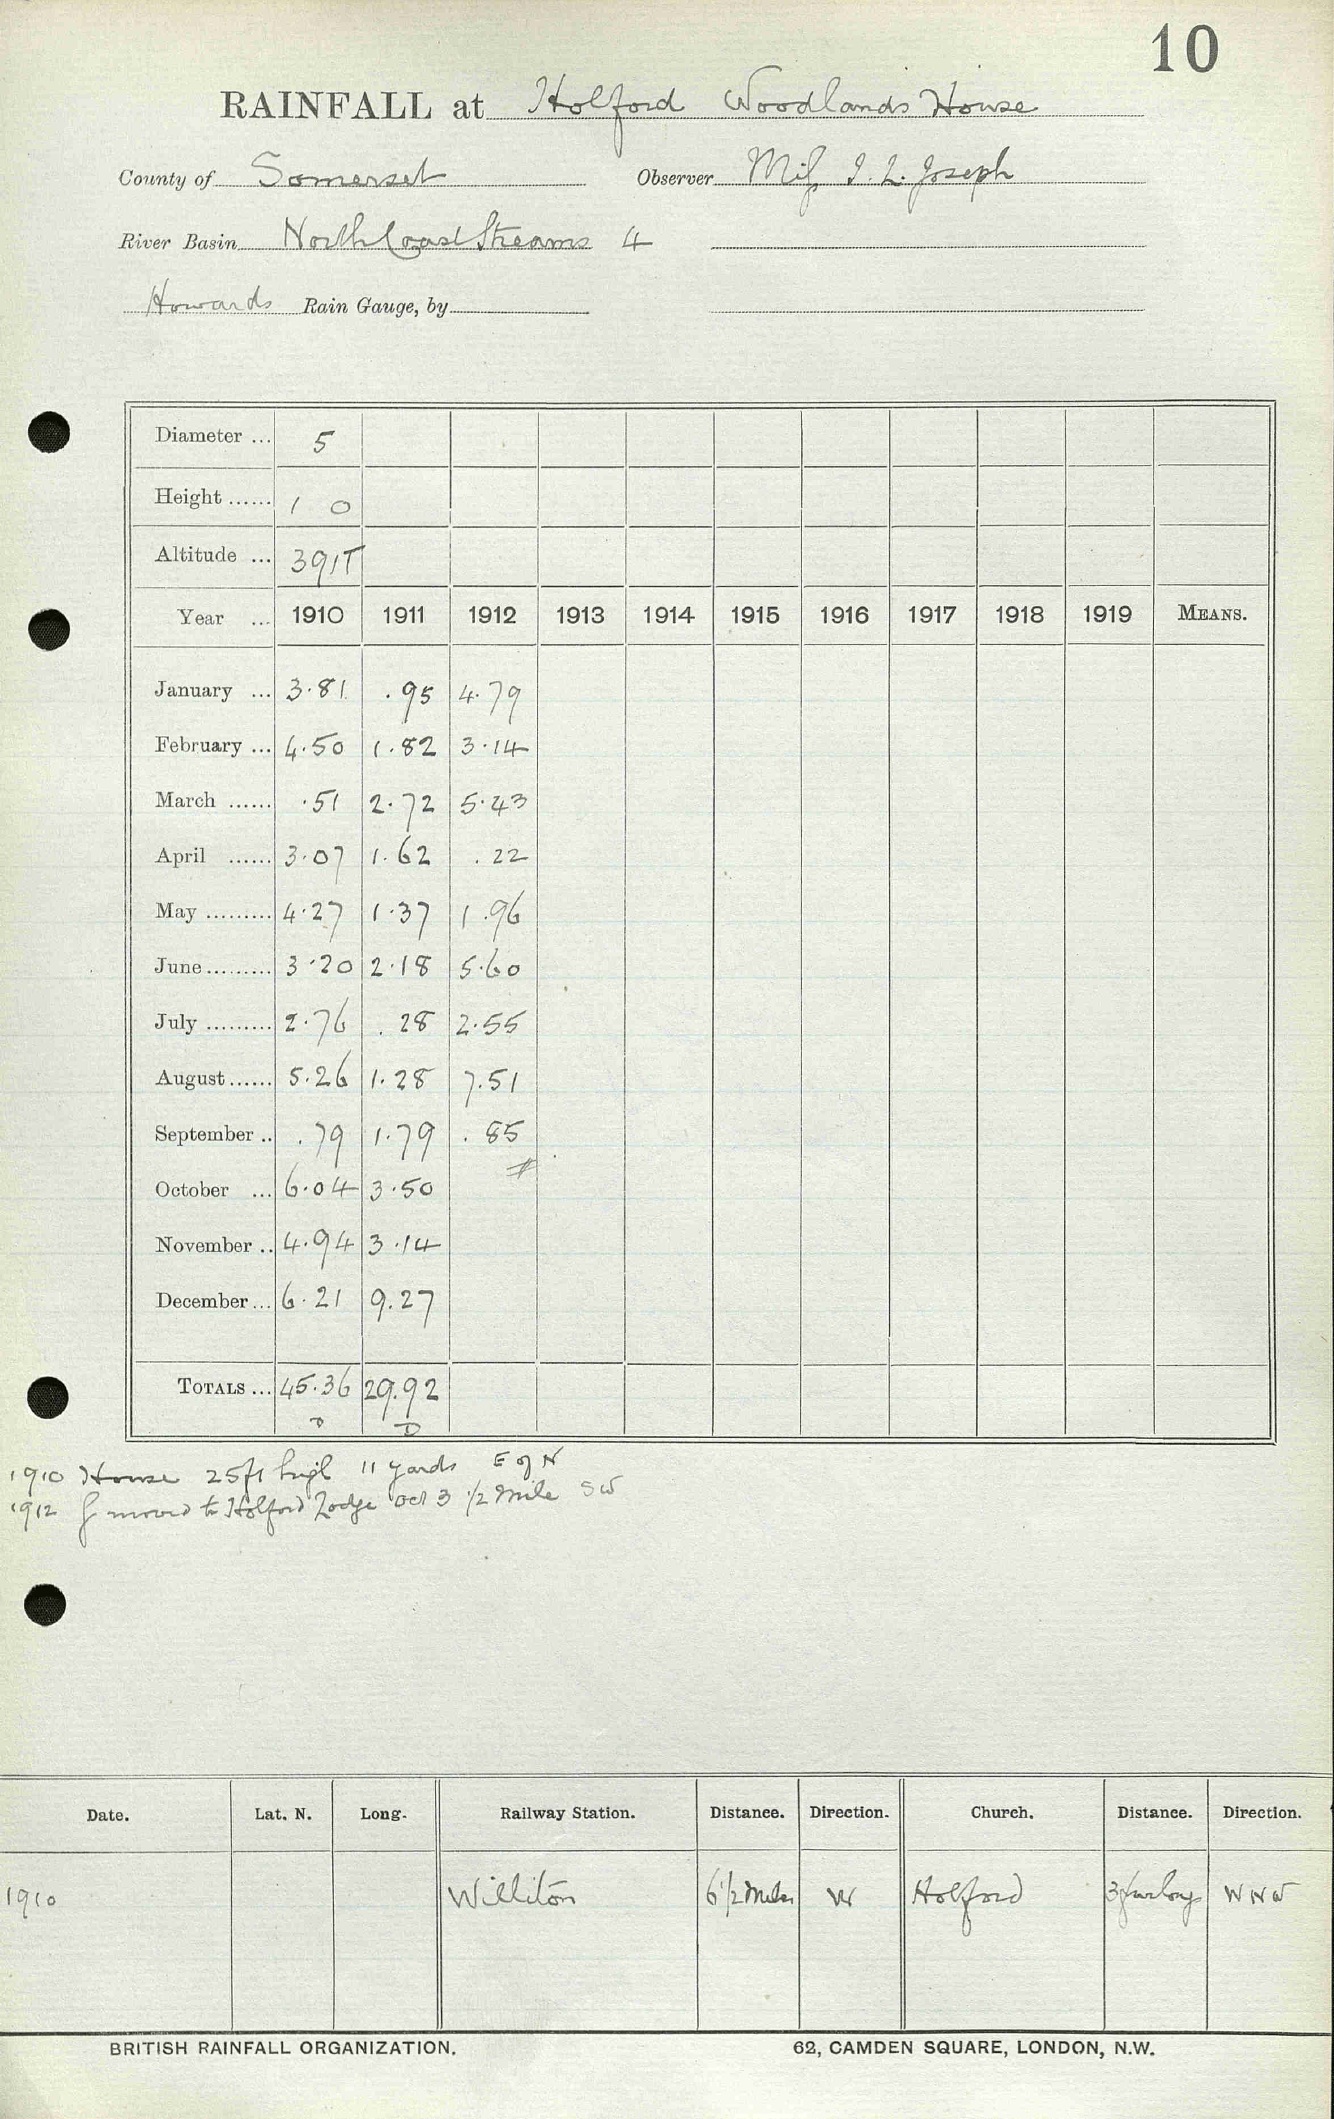 10
RAINFALL at Holford Woodlands House
County of Somerset Observer Miss I. L. Joseph
River Basin North Coast Streams 4
Howards Rain Gauge, by
Diameter ... 5
Height ...... 1 0
Altitude ... 391T
Year ... 1910 1911 1912 1913 1914 1915 1916 1917 1918 1919 MEANS.
January ... 3.81 .95 4.79
February ... 4.50 1.82 3.14
March ...... .51 2.72 5.43
April ...... 3.07 1.62 .22
May ......... 4.27 1.37 1.96
June ......... 3.20 2.18 5.60
July ......... 2.76 .28 2.55
August ...... 5.26 1.28 7.51
September .. .79 1.79 .85
October ... 6.04 3.50
November .. 4.94 3.14
December ... 6.21 9.27
TOTALS ... 45.36 29.92
D D
1910 House 25ft high 11 yards E of N
1912 G moved to Holford Lodge Oct 3 1/2 mile SW
Date. Lat. N. Long. Railway Station. Distance. Direction. Church. Distance. Direction.
1910 Williton 6 1/2 Miles W Holford 3 furlongs WNW
BRITISH RAINFALL ORGANIZATION. 62, CAMDEN SQUARE, LONDON, N.W.